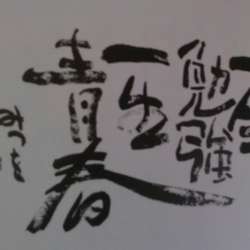 勉強
一生
青春
みつを